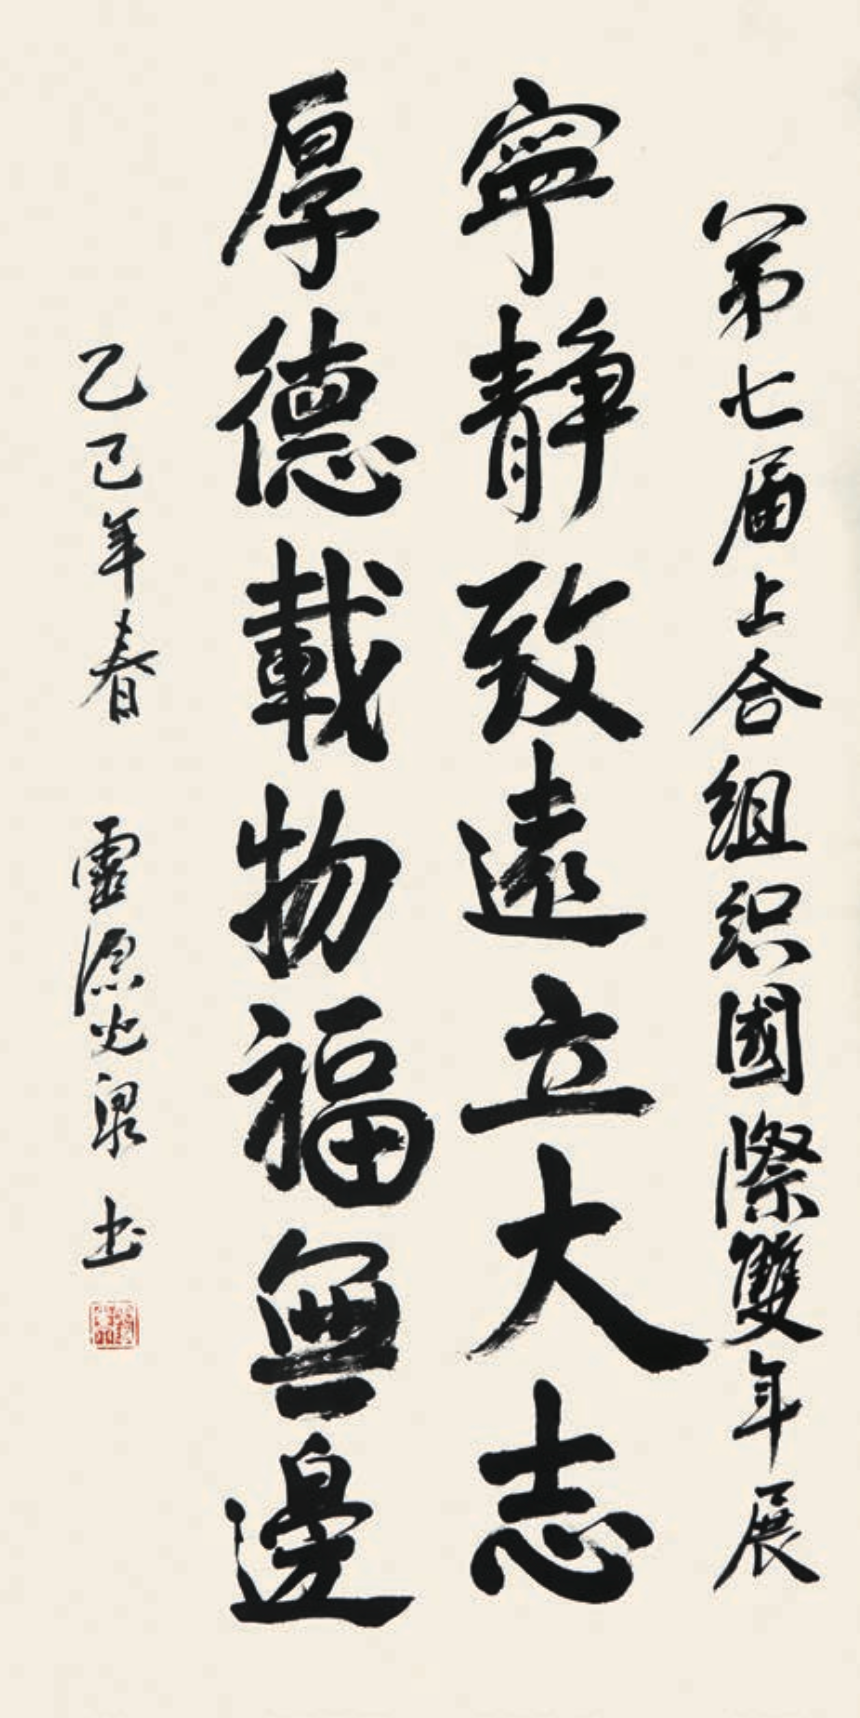 第七届上合组织國際雙年展
寧静致遠立大志
厚德載物福無邊
乙巳年春 靈源 泉 书